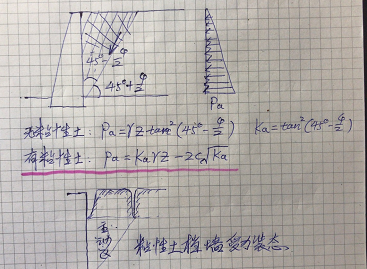 45°-φ/2
45°+φ/2
Pa
无粘性土: Pa=γz tan²(45°-φ/2) Ka=tan²(45°-φ/2)
有粘性土: Pa=Kaγz-2c√Ka
主动区
粘性土挡墙受力状态